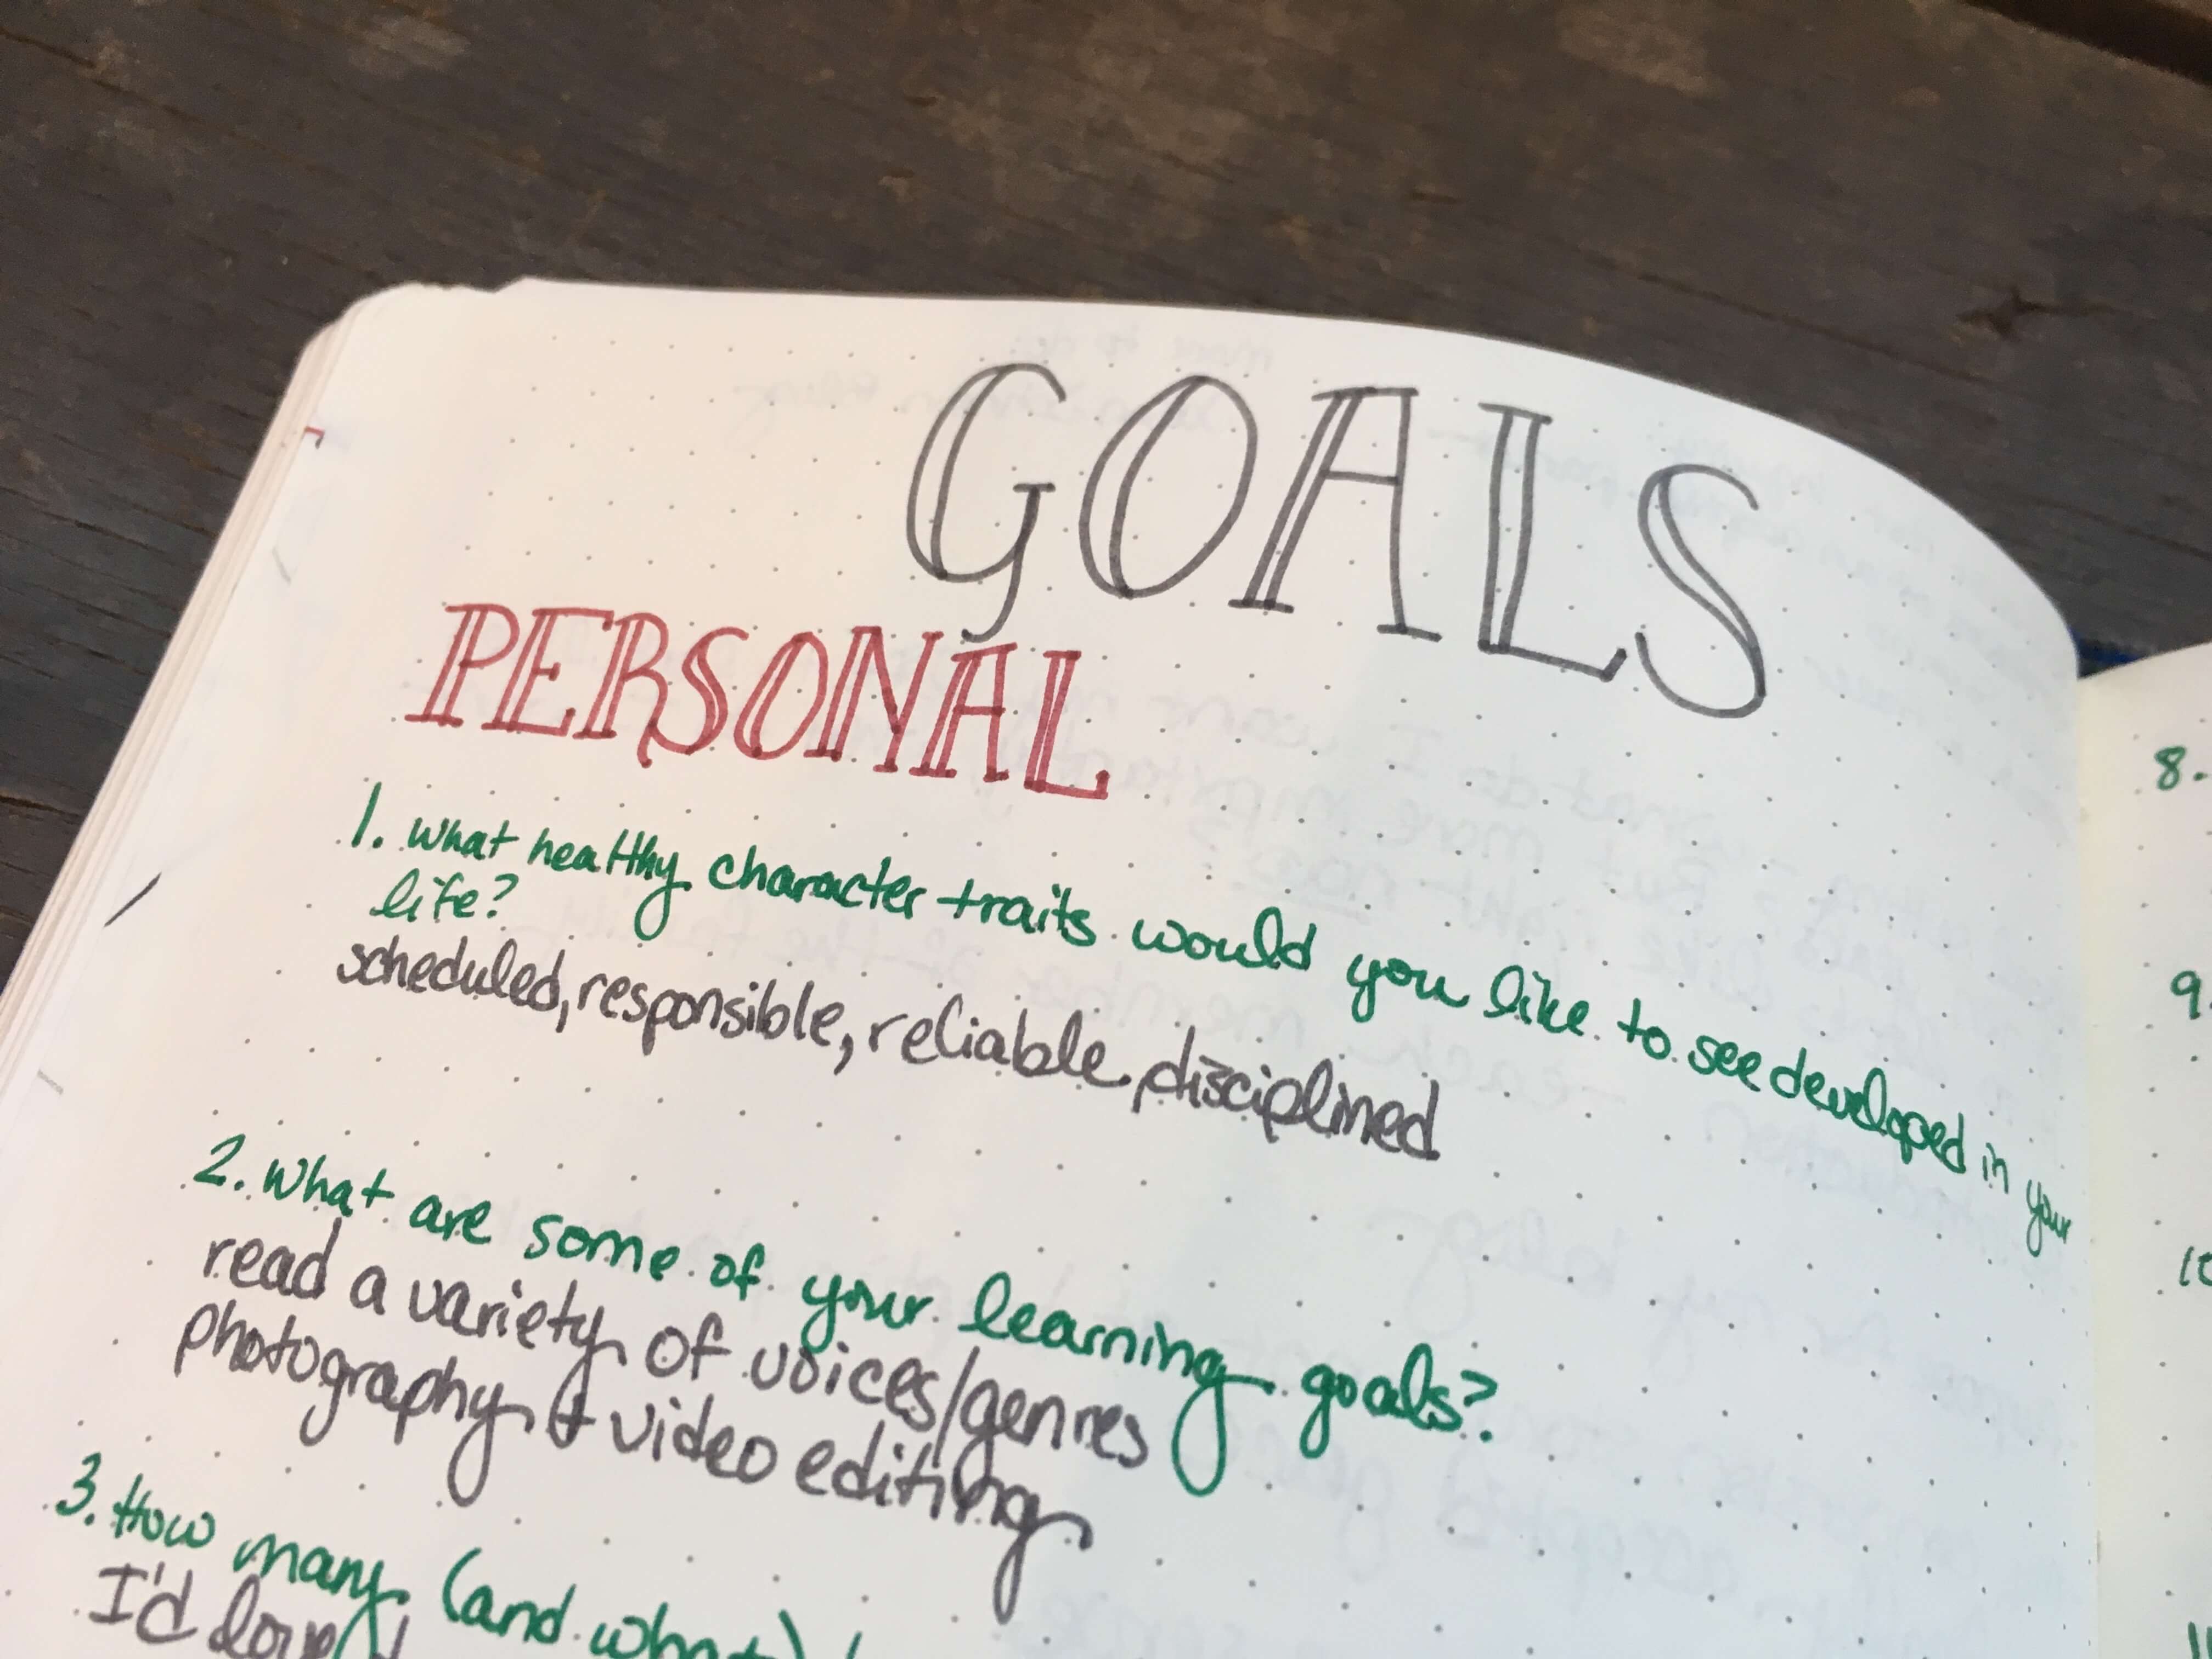 GOALS
PERSONAL
1. What healthy character traits would you like to see developed in your
life?
scheduled, responsible, reliable, disciplined
2. What are some of your learning goals?
read a variety of voices/genres
photography & video editing
3. How many (and what)
I'd love
8.
9.
10
11